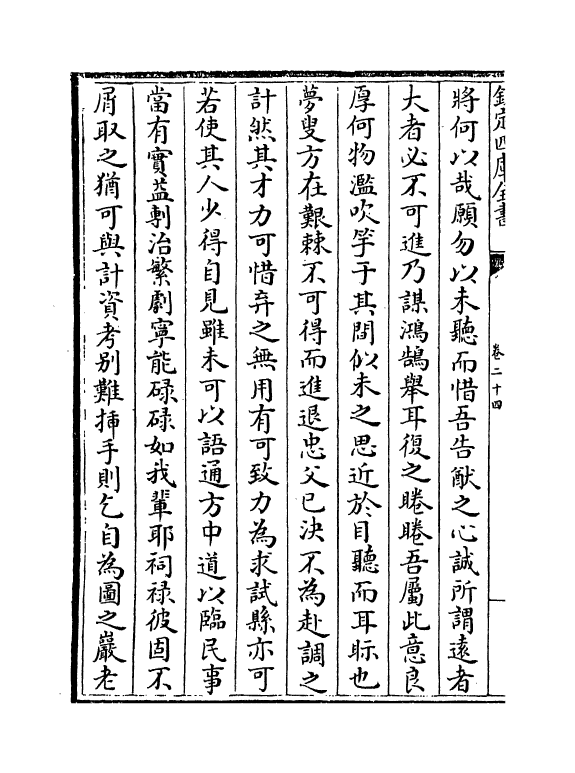 欽定四庫全書
卷二十四
將何以哉願勿以未聽而惜吾告猷之心誠所謂遠者
大者必不可進乃謀鴻鵠舉耳復之睠睠吾屬此意良
厚何物濫吹竽于其間似未之思近於目聽而耳眎也
夢叟方在艱棘不可得而進退忠父已決不為赴調之
計然其才力可惜弃之無用有可致力為求試縣亦可
若使其人少得自見雖未可以語通方中道以臨民事
當有實益剸治繁劇寧能碌碌如我輩耶祠禄彼固不
屑取之猶可與計資考别難揷手則乞自為圖之巖老